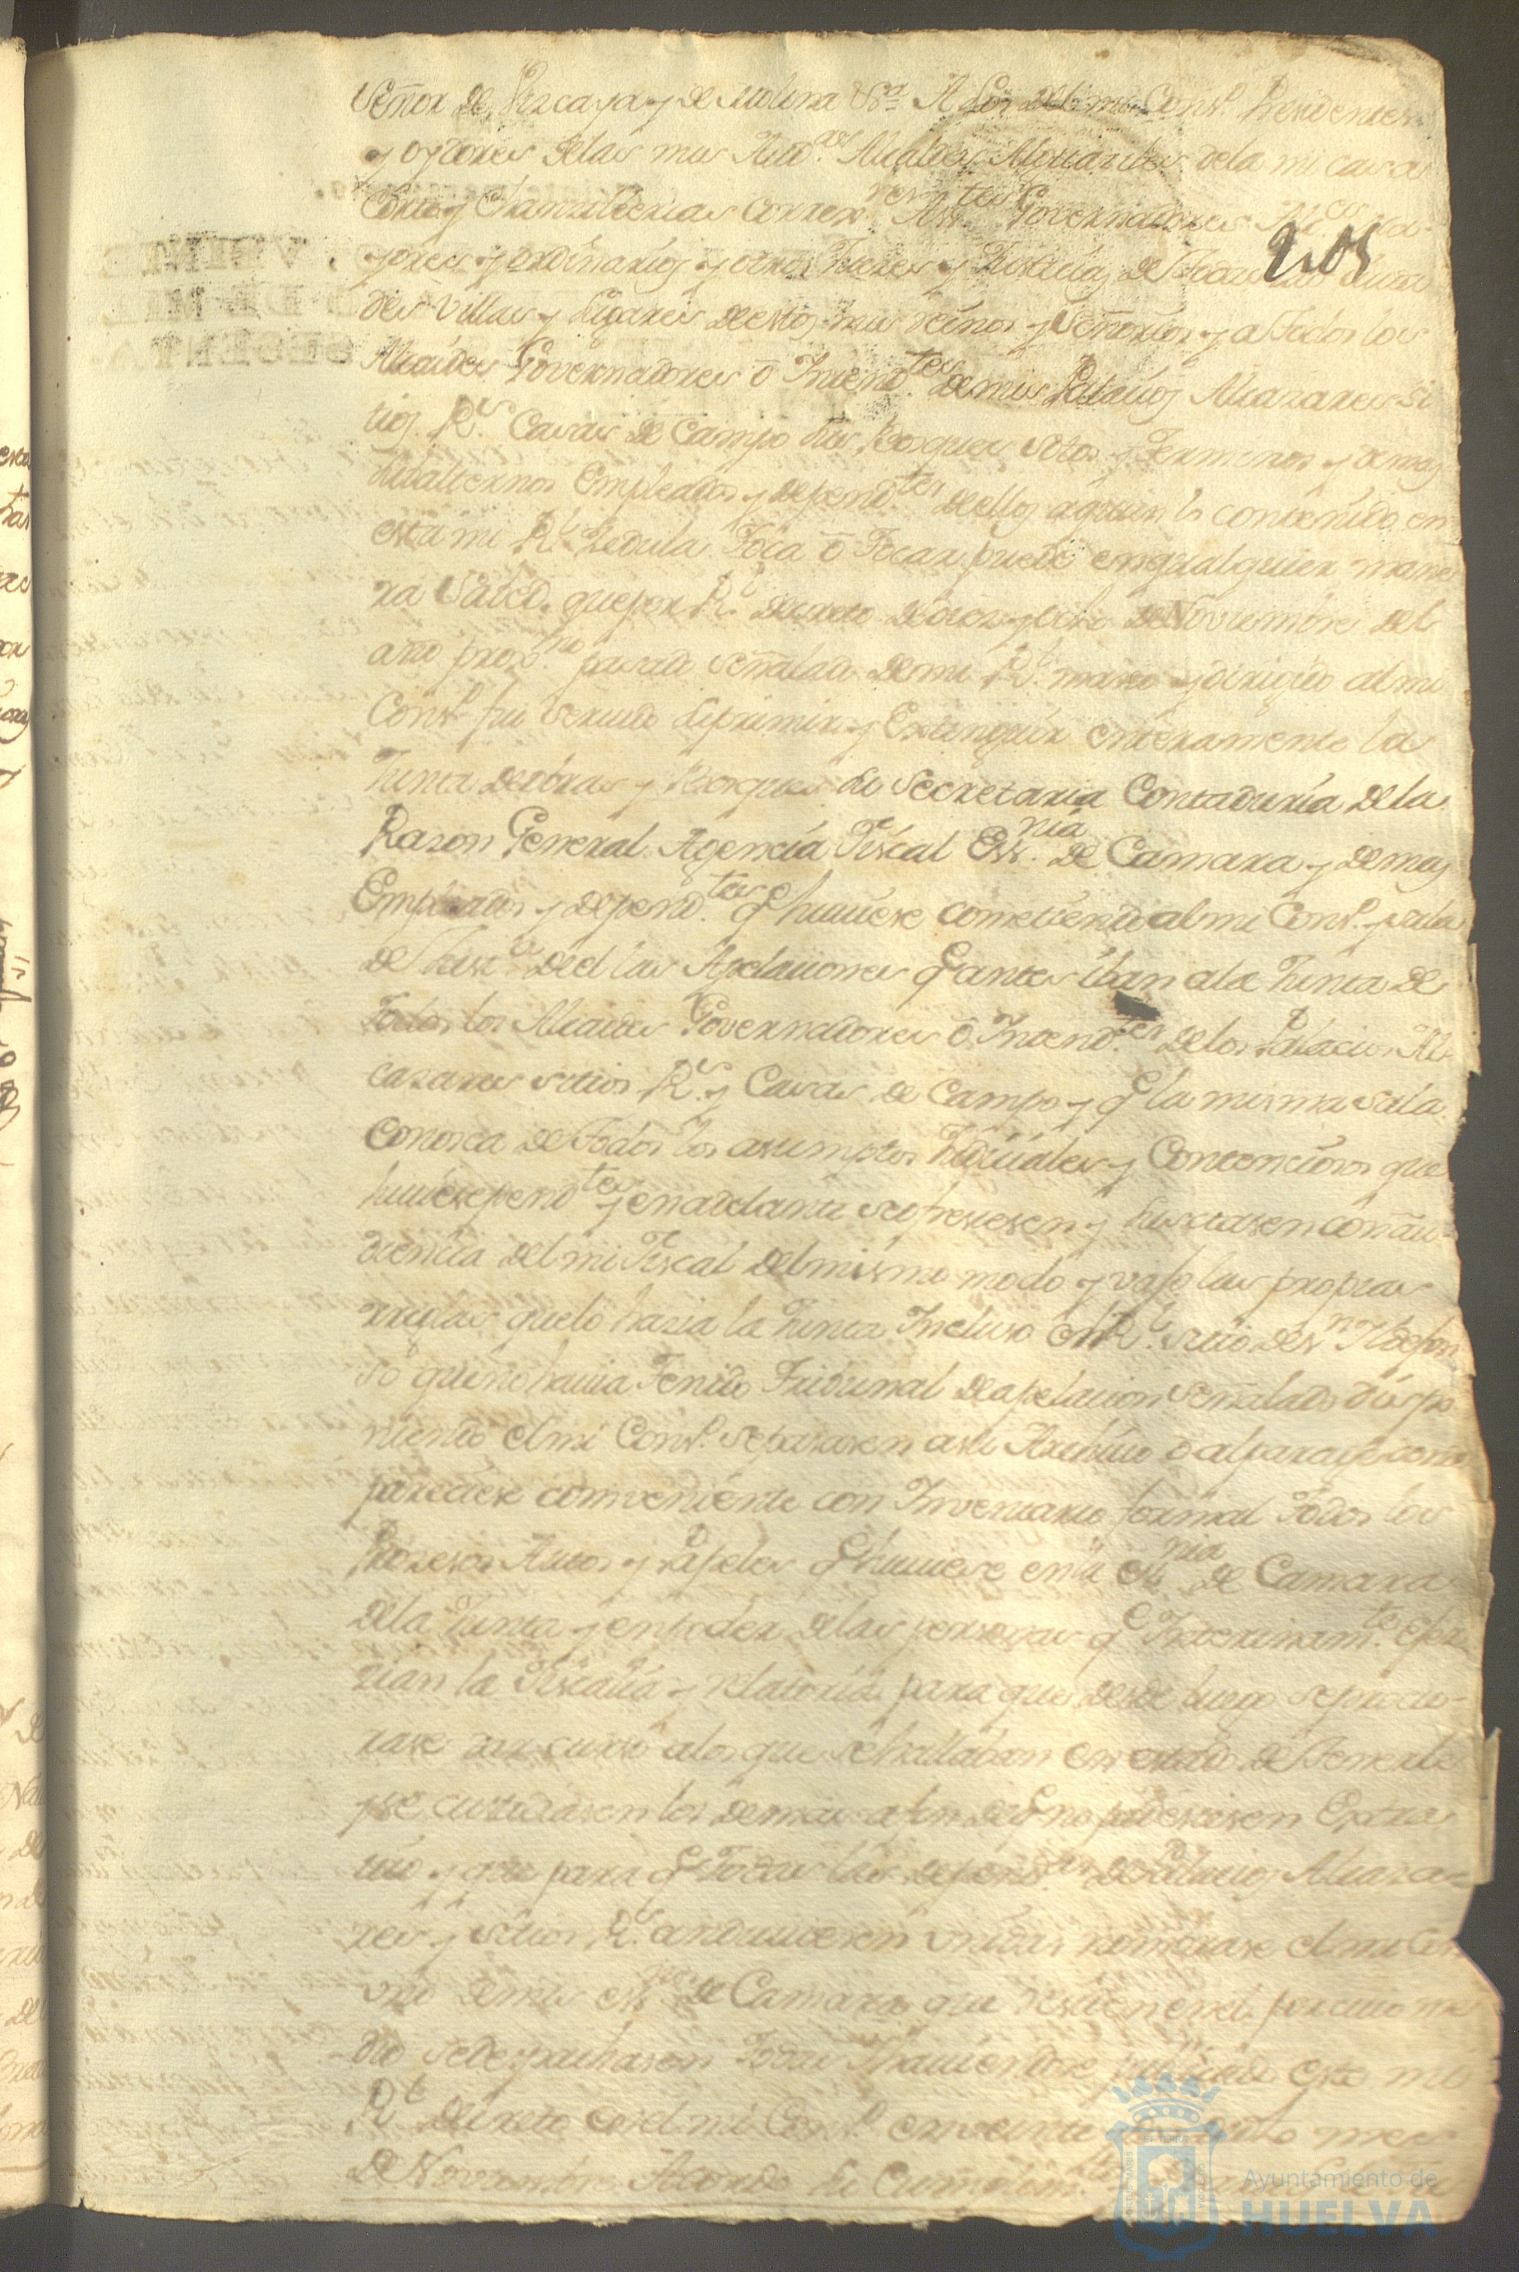 Señor de Vizcaya y de Molina &ra A los del mi Consº Presidentes
y oydores de las mis Audas Alcaldes Alguaziles de la mi casa
Corte y Chanzillerias Correxres Asstes Governadores Alces Ma-
205
yores y ordinarios y otros Juezes y Justicias de todas las Ciuda
des Villas y Lugares de estos mis reinos y Señorios y a todos los
Alcaides Governadores ô Intendtes de mis Palacios Alcazares Si
tios Rs Casas de Campo sus Bosques Sotos y Terminos y demas
subalternos Empleados y dependtes de ellos a quien lo contenido en
esta mi Rl Zedula toca ô tocar puede en qualquier mane
ra Sabed. que por Rl decreto de diez y ocho de Noviembre del
año proxmo pasado señalado de mi Rl mano y dirigido al mi
Consº fui servido suprimir y Extinguir enteramente la
Junta de obras y Bosques su Secretaria Contaduria de la
Razon General Agencia Fiscal Essnia de Camara y demas
Empleados y dependtes q huviese cometiendo al mi Consº y sala
de Justa de el las Apelaciones q antes iban a la Junta de
todos los Alcaides Governadores ô Intendtes de los Palacios Al-
cazares sitios Rs y Casas de Campo y q la misma sala
conozca de todos los asumptos Judiciales y Contenciosos que
huviese pendtes y en adelante se ofreciesen y suscitasen con au-
diencia del mi Fiscal del mismo modo y vajo las propias
reglas que lo hazia la Junta Incluso el Rl sitio de Sn Ildefon
so que no havia tenido Tribunal de apelacion señalado dispo
niendo el mi Consº se pasasen a su Archivo o al parage q como
pareciese conveniente con Inventario formal todos los
Prozesos Autos y papeles q huviese en la Essnia de Camara
de la Junta y en poder de las personas q Interinamte ejer
zian la Fiscalia y relatoria para que desde luego se procu-
rase dar curso a los que se hallaban en estado de tenerle
y se custodiasen los demas a fin de q no padeciesen Extra
vio y que para q todas las dependas de Palacios Alcaza-
res y sitios Rs anduviesen unidas nombrase el mi Consº
uno de mis essnos de Camara que residen en el por cuio me
dio se despachasen todas Y haviendose publicado este mi
Rl decreto en el mi Consº en veinte de dicho mes
de Noviembre Acordo su Cumplimto
Ayuntamiento de
HUELVA